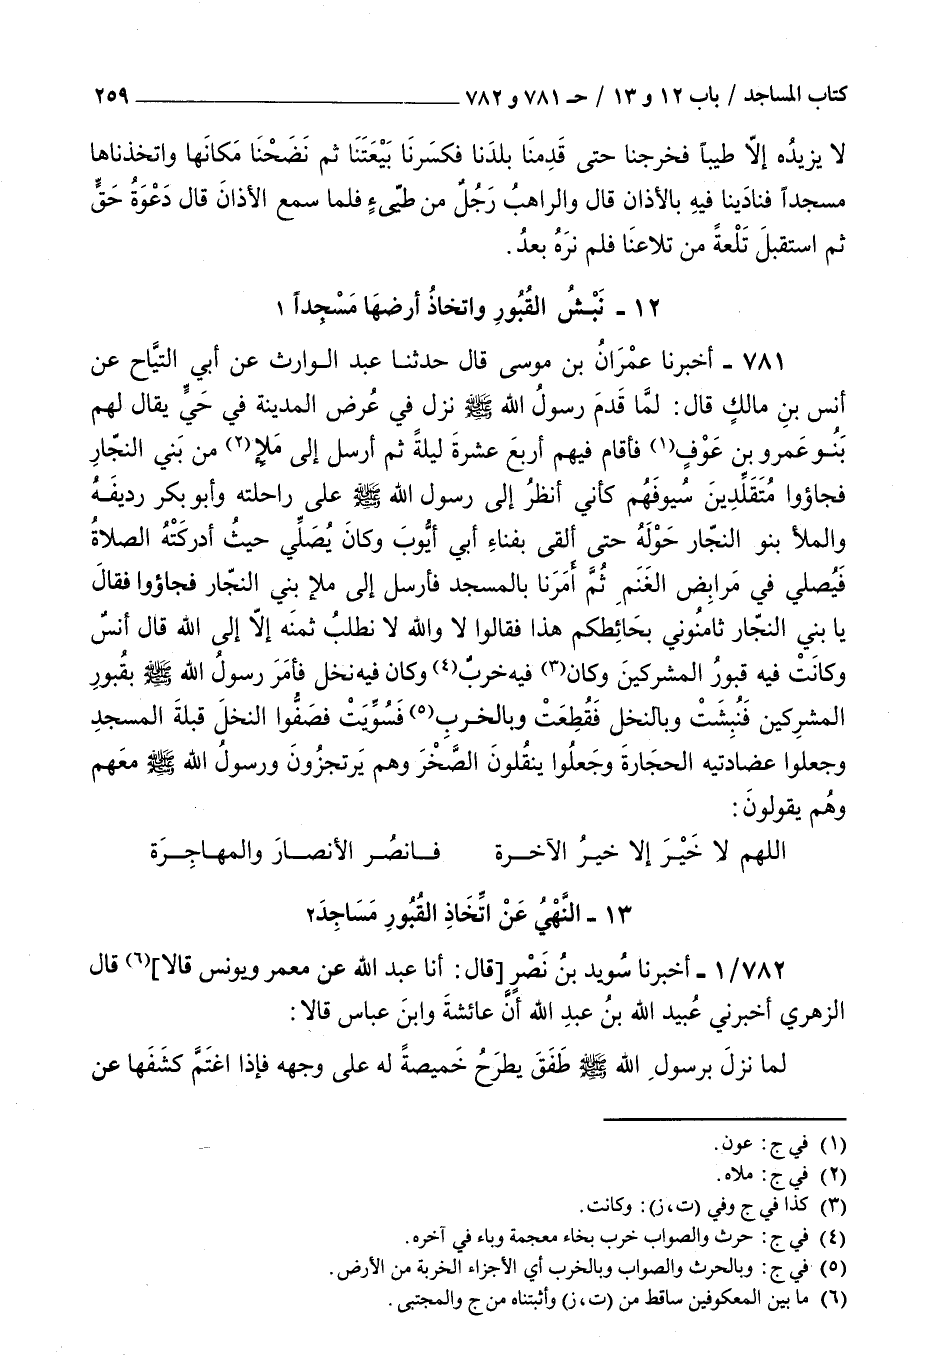 كتاب المساجد / باب ١٢ و ١٣ / حـ ٧٨١ و ٧٨٢ ـــــــــــــــــــــ ٢٥٩
لا يزيدُه إلاّ طيباً فخرجنا حتى قَدِمنَا بلدَنا فكسَرنَا بَيْعَتَنَا ثم نَضَحْنَا مَكانَها واتخذناها
مسجداً فنادَينا فيهِ بالأذان قال والراهبُ رَجُلٌ من طيّىءٍ فلما سمع الأذانَ قال دَعْوَةُ حَقٍّ
ثم استقبلَ تَلْعةً من تلاعنَا فلم نرَهُ بعدُ.
١٢ ـ نَبْشُ القُبُورِ واتخاذُ أرضهَا مَسْجِداً ١
٧٨١ ـ أخبرنا عمْرَانُ بن موسى قال حدثنـا عبد الـوارث عن أبي التيَّاح عن
أنس بنِ مالكٍ قال: لمَّا قَدمَ رسولُ الله ﷺ نزل في عُرض المدينة في حَيٍّ يقال لهم
بَنُـو عَمرو بن عَوْفٍ(١) فأقام فيهم أربعَ عشرةَ ليلةً ثم أرسل إلى مَلإٍ(٢) من بَني النجّارِ
فجاؤوا مُتَقَلِّدِينَ سُيوفَهُم كأني أنظرُ إلى رسول الله ﷺ على راحلته وأبو بكر رديفَـهُ
والملأ بنو النجّار حَوْلَهُ حتى ألقى بفناءِ أبي أيُّوبَ وكانَ يُصَلِّي حيثُ أدركتْهُ الصلاةُ
فَيُصلي في مَرابِض الغَنَمِ ثُمَّ أمَرَنا بالمسجد فأرسل إلى ملإ بني النجّار فجاؤوا فقالَ
يا بني النجّار ثامنُوني بحَائِطكم هذا فقالوا لا والله لا نطلبُ ثمنَه إلّا إلى الله قال أنسٌ
وكانَتْ فيه قبورُ المشركينَ وكان(٣) فيه خربٌ(٤) وكان فيه نخل فأمَرَ رسولُ الله ﷺ بقُبورِ
المشرِكين فَنُبِشَتْ وبالنخل فَقُطِعَتْ وبالخربِ(٥) فَسُوِّيَتْ فصَفُّوا النخلَ قبلةَ المسجدِ
وجعلوا عضادتيه الحجارةَ وجَعلُوا ينقُلونَ الصَّخْرَ وهم يَرتجزُونَ ورسولُ الله ﷺ معَهم
وهُم يقولونَ:
اللهم لا خَيْرَ إلا خيرُ الآخـرة     فـانصُـر الأنصـارَ والمهـاجِـرَة
١٣ ـ النَّهْيُ عَنْ اتِّخَاذِ القُبُورِ مَسَاجِدَ٢
١/٧٨٢ ـ أخبرنا سُويد بنُ نَصْرٍ [قال: أنا عبد الله عن معمر ويونس قالا](٦) قال
الزهري أخبرني عُبيد الله بنُ عبدِ الله أنَّ عائشةَ وابنَ عباس قالا:
لما نزلَ برسولِ الله ﷺ طَفَقَ يطرَحُ خَميصةً له على وجهه فإذا اغتَمَّ كشَفَها عن
(١) في ج: عون.
(٢) في ج: ملاه.
(٣) كذا في ج وفي (ت، ز): وكانت.
(٤) في ج: حرث والصواب خرب بخاء معجمة وباء في آخره.
(٥) في ج: وبالحرث والصواب وبالخرب أي الأجزاء الخربة من الأرض.
(٦) ما بين المعكوفين ساقط من (ت، ز) وأثبتناه من ج والمجتبى.